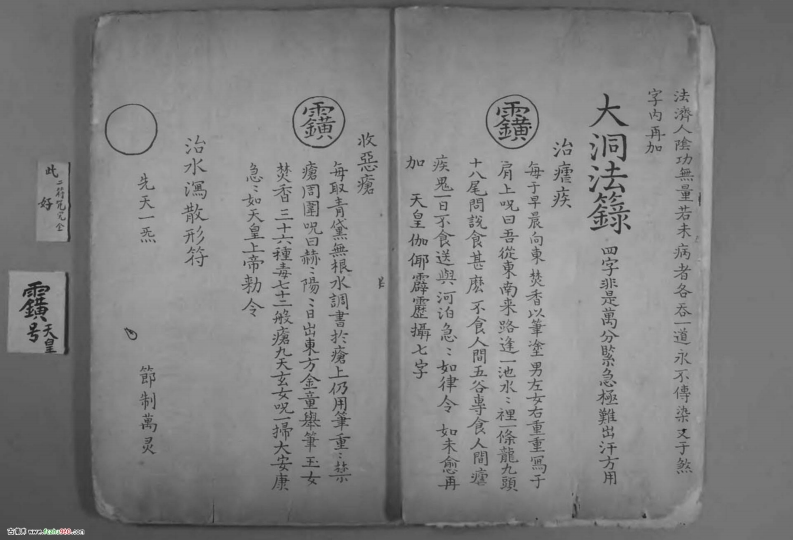 法濟人陰功無量若未病者各吞一道永不傳染又于煞
字內再加
大洞法籙 四字非是萬分緊急極難出汗方用
治瘧疾
每于早晨向東焚香以筆塗男左女右重重寫于
肩上呪曰吾從東南来路逢一池水〻裡一條龍九頭
十八尾問說食甚麽不食人間五谷專食人間瘧
疾鬼一日不食送與河泊急〻如律令 如未愈再
加 天皇伽倻霹靂攝七字
收惡瘡
每取青黛無根水調書於瘡上仍用筆重〻禁
瘡周圍呪曰赫〻陽〻日出東方金童舉筆玉女
焚香三十六種毒七十二般瘡九天玄女呪一掃大安康
急〻如天皇上帝勅令
治水瀉散形符
先天一炁 節制萬灵
此二符咒完全
好
天皇
号
古籍 www.